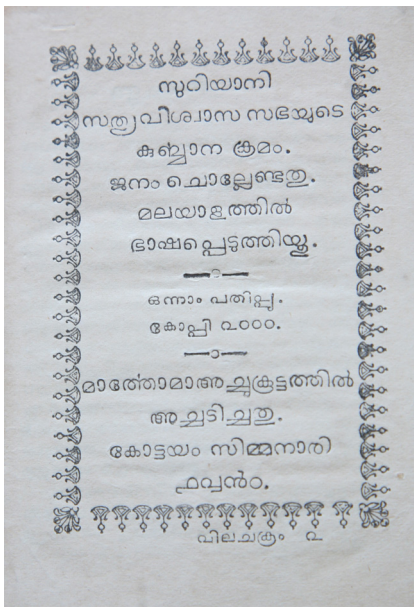 സുറിയാനി
സത്യവിശ്വാസ സഭയുടെ
കുൎബ്ബാന ക്രമം.
ജനം ചൊല്ലേണ്ടതു.
മലയാളത്തിൽ
ഭാഷപ്പെടുത്തിയ്തു.
ഒന്നാം പതിപ്പു.
കോപ്പി ൨൦൦൦.
മാൎത്തോമാഅച്ചുകൂട്ടത്തിൽ
അച്ചടിച്ചതു.
കോട്ടയം സിമ്മനാരി
വിലചക്രം ൨